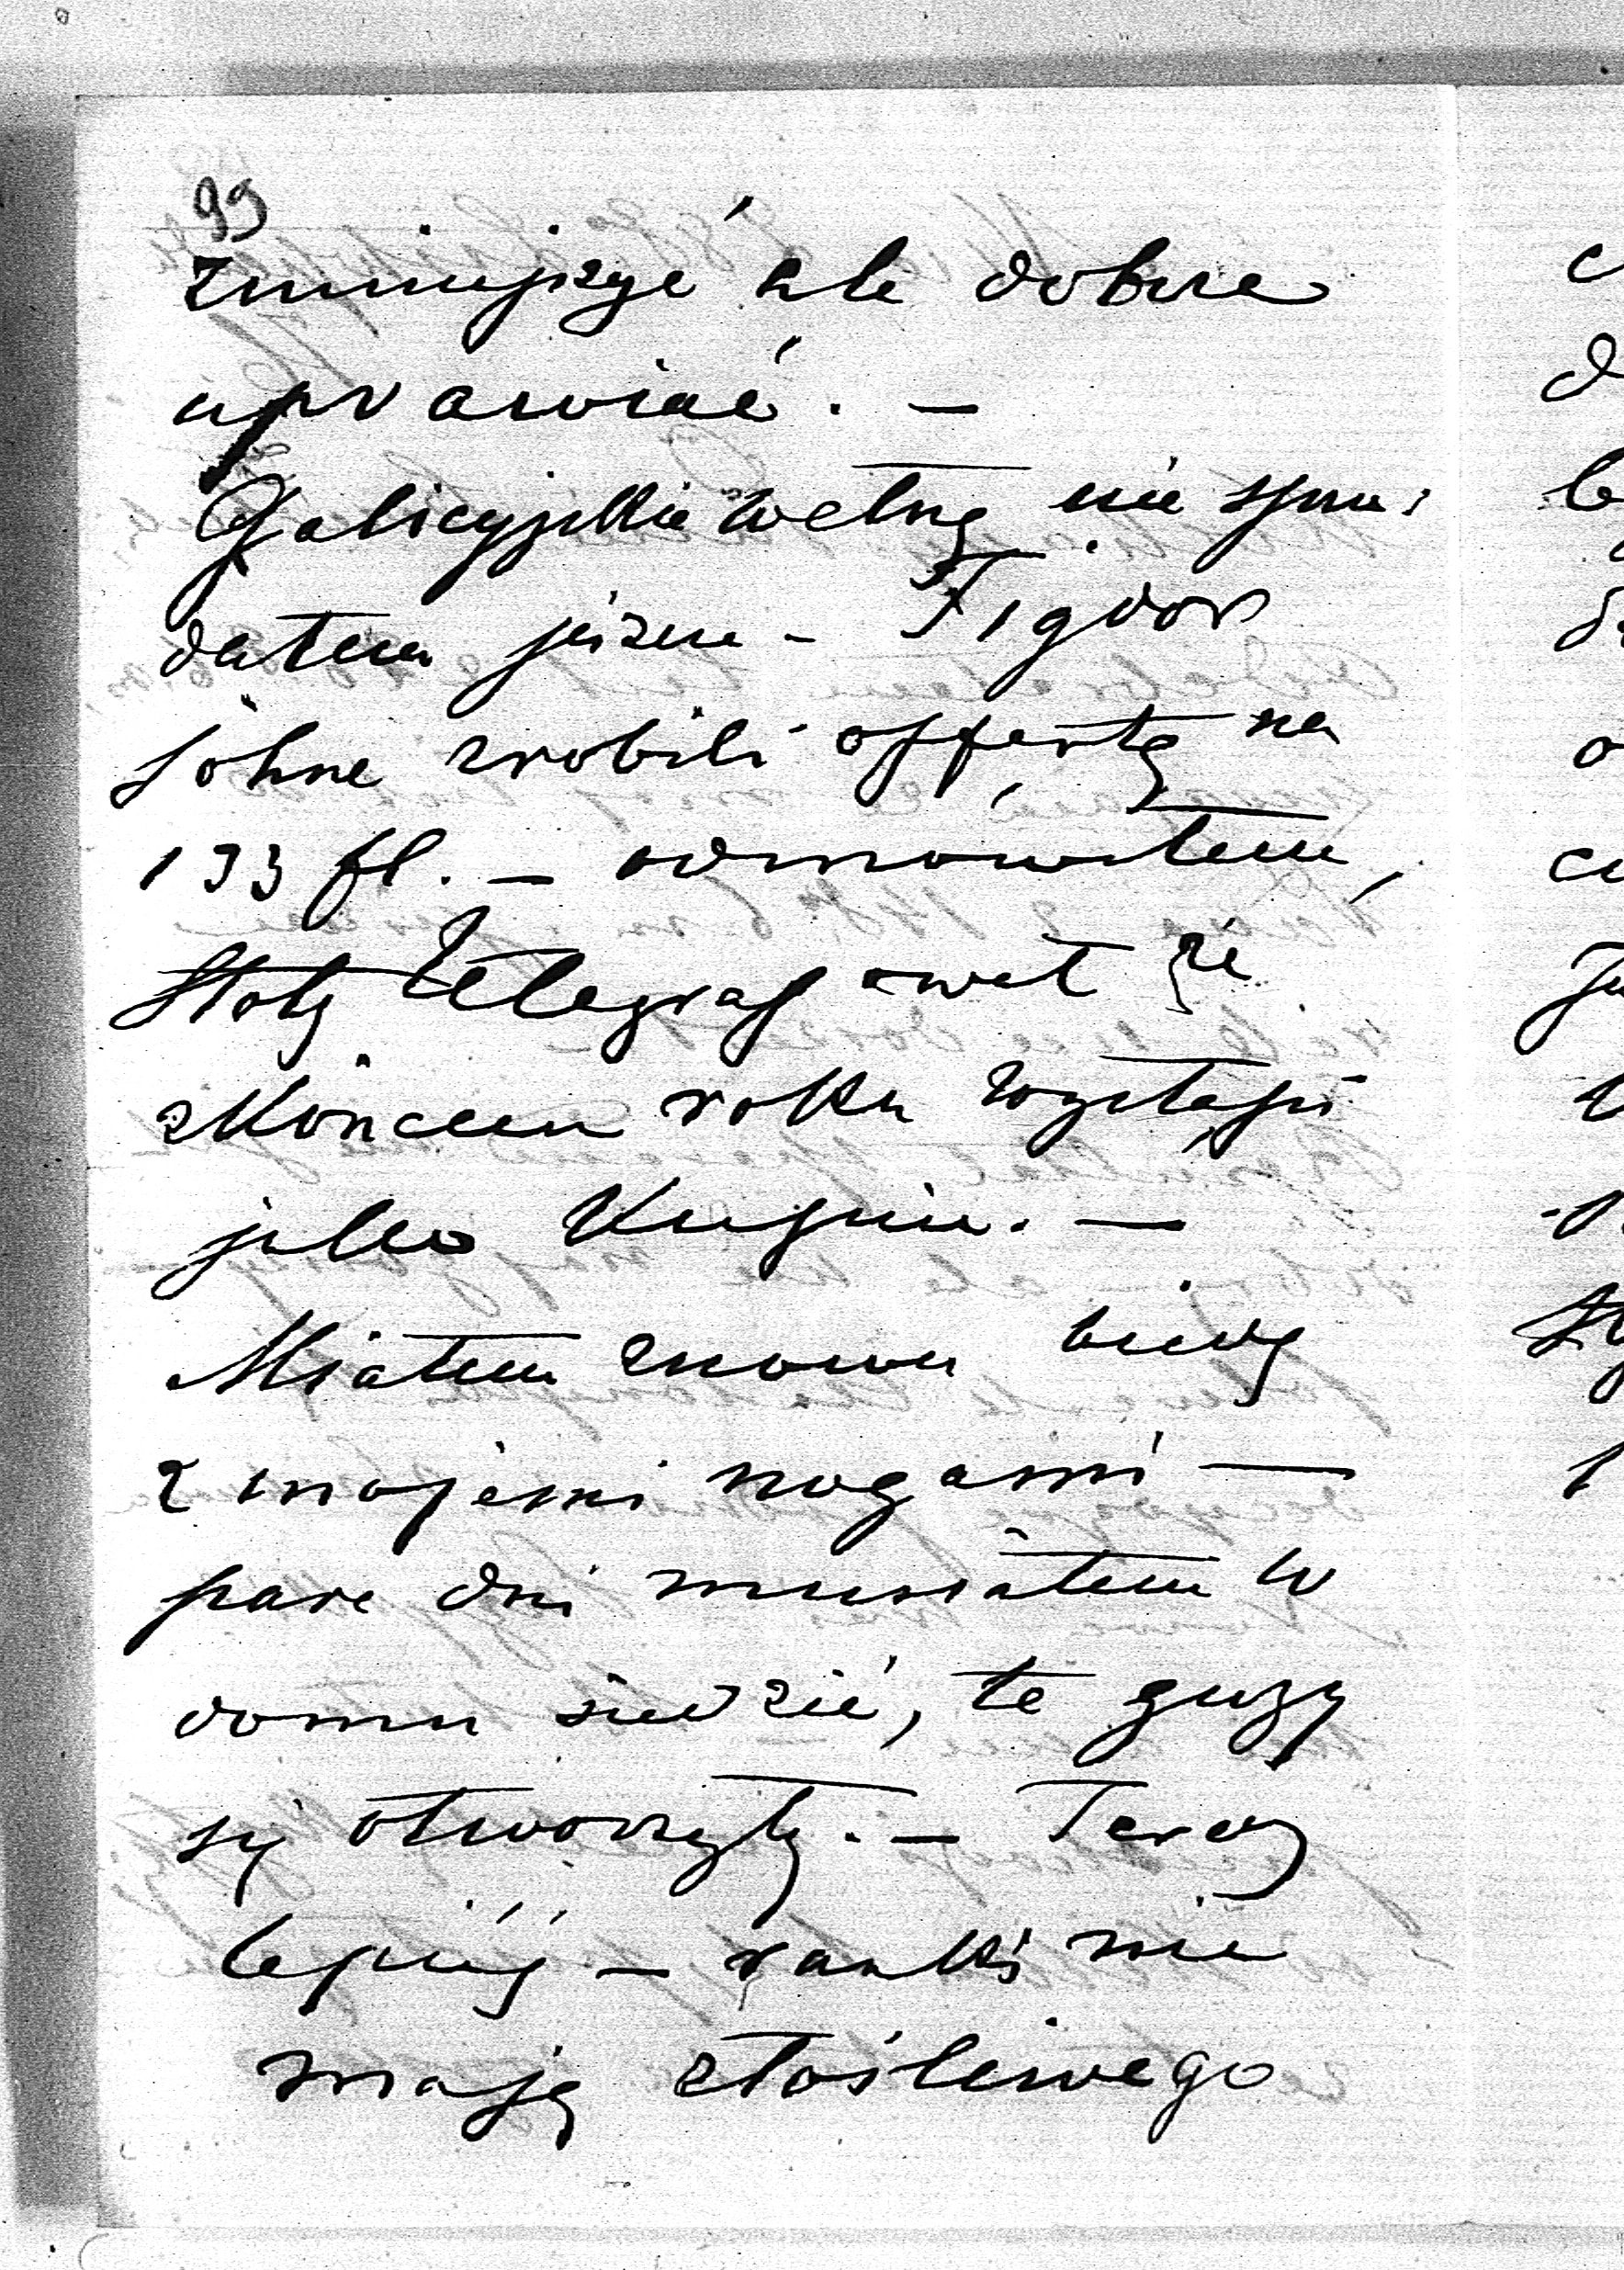 99
zmniejszyć ale dobrze
uprawiać. —
Galicyjskie wełnę nie sprze
dałem jeszcze — Figdor
söhne zrobili offertę na
133 fl. — odmówiłem,
Stolz telegrafował że
z końcem roku wystąpi
jako Kupiec. —
Miałem znowu biedę
z mojemi nogami —
pare dni musiałem w
domu siedzieć, te guzy
się otworzyły. — Teraz
lepiéj — ranki nie
mają złośliwego